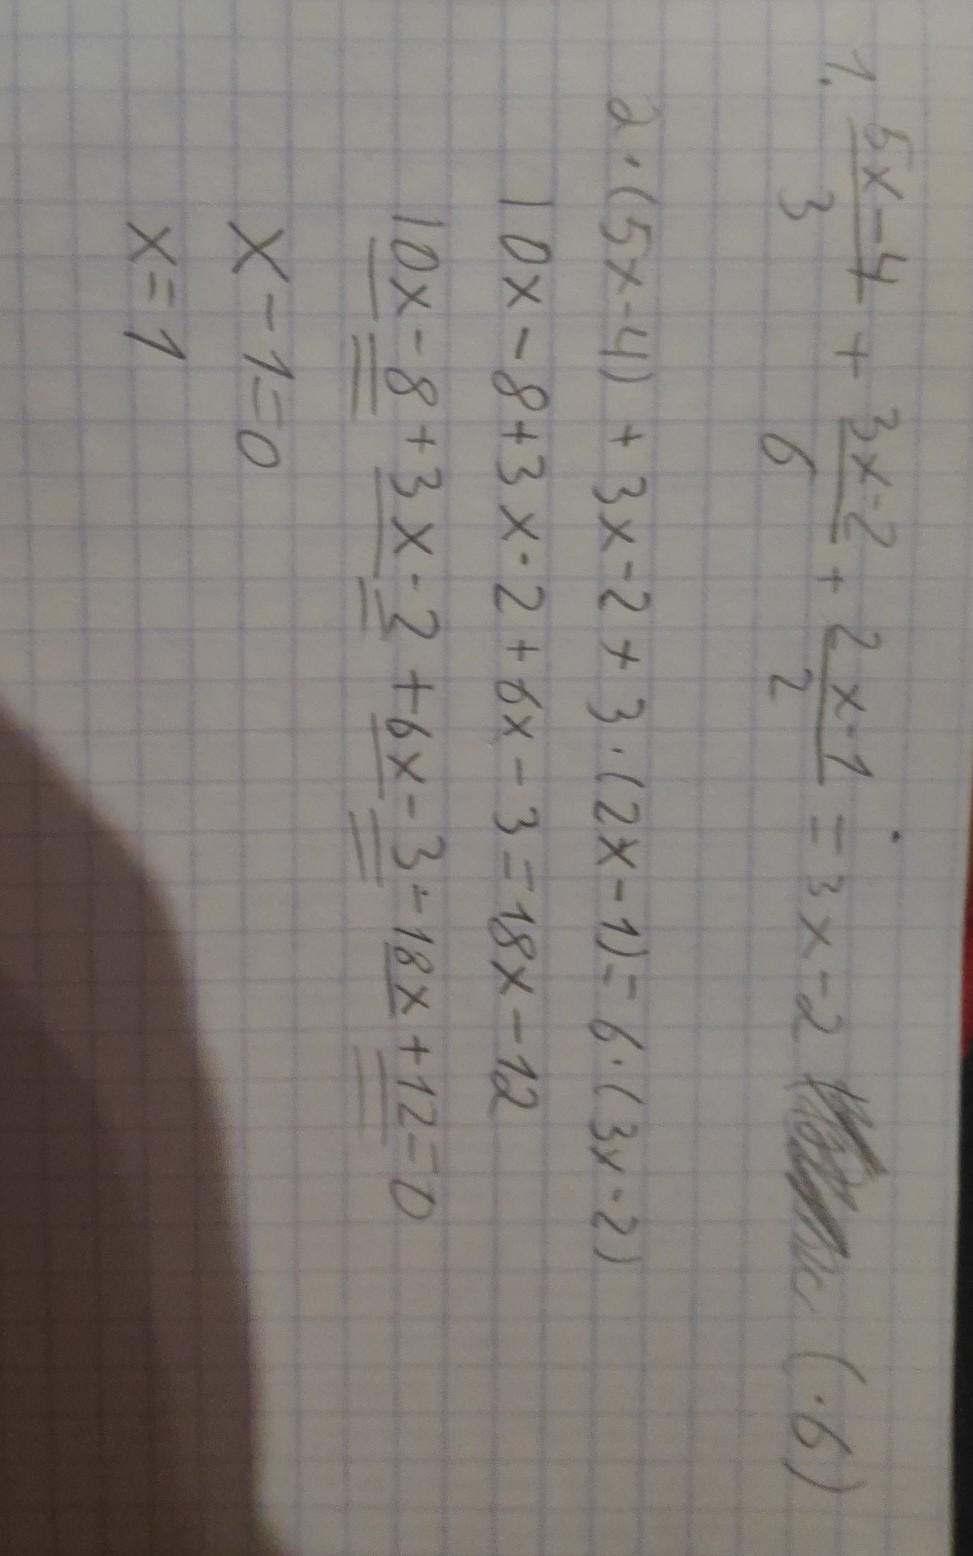 1. (5x-4)/3 + (3x-2)/6 + (2x-1)/2 = 3x-2 (·6)
2·(5x-4) + 3x-2 + 3·(2x-1) = 6·(3x-2)
10x-8+3x-2+6x-3=18x-12
10x-8+3x-2+6x-3-18x+12=0
x-1=0
x=1